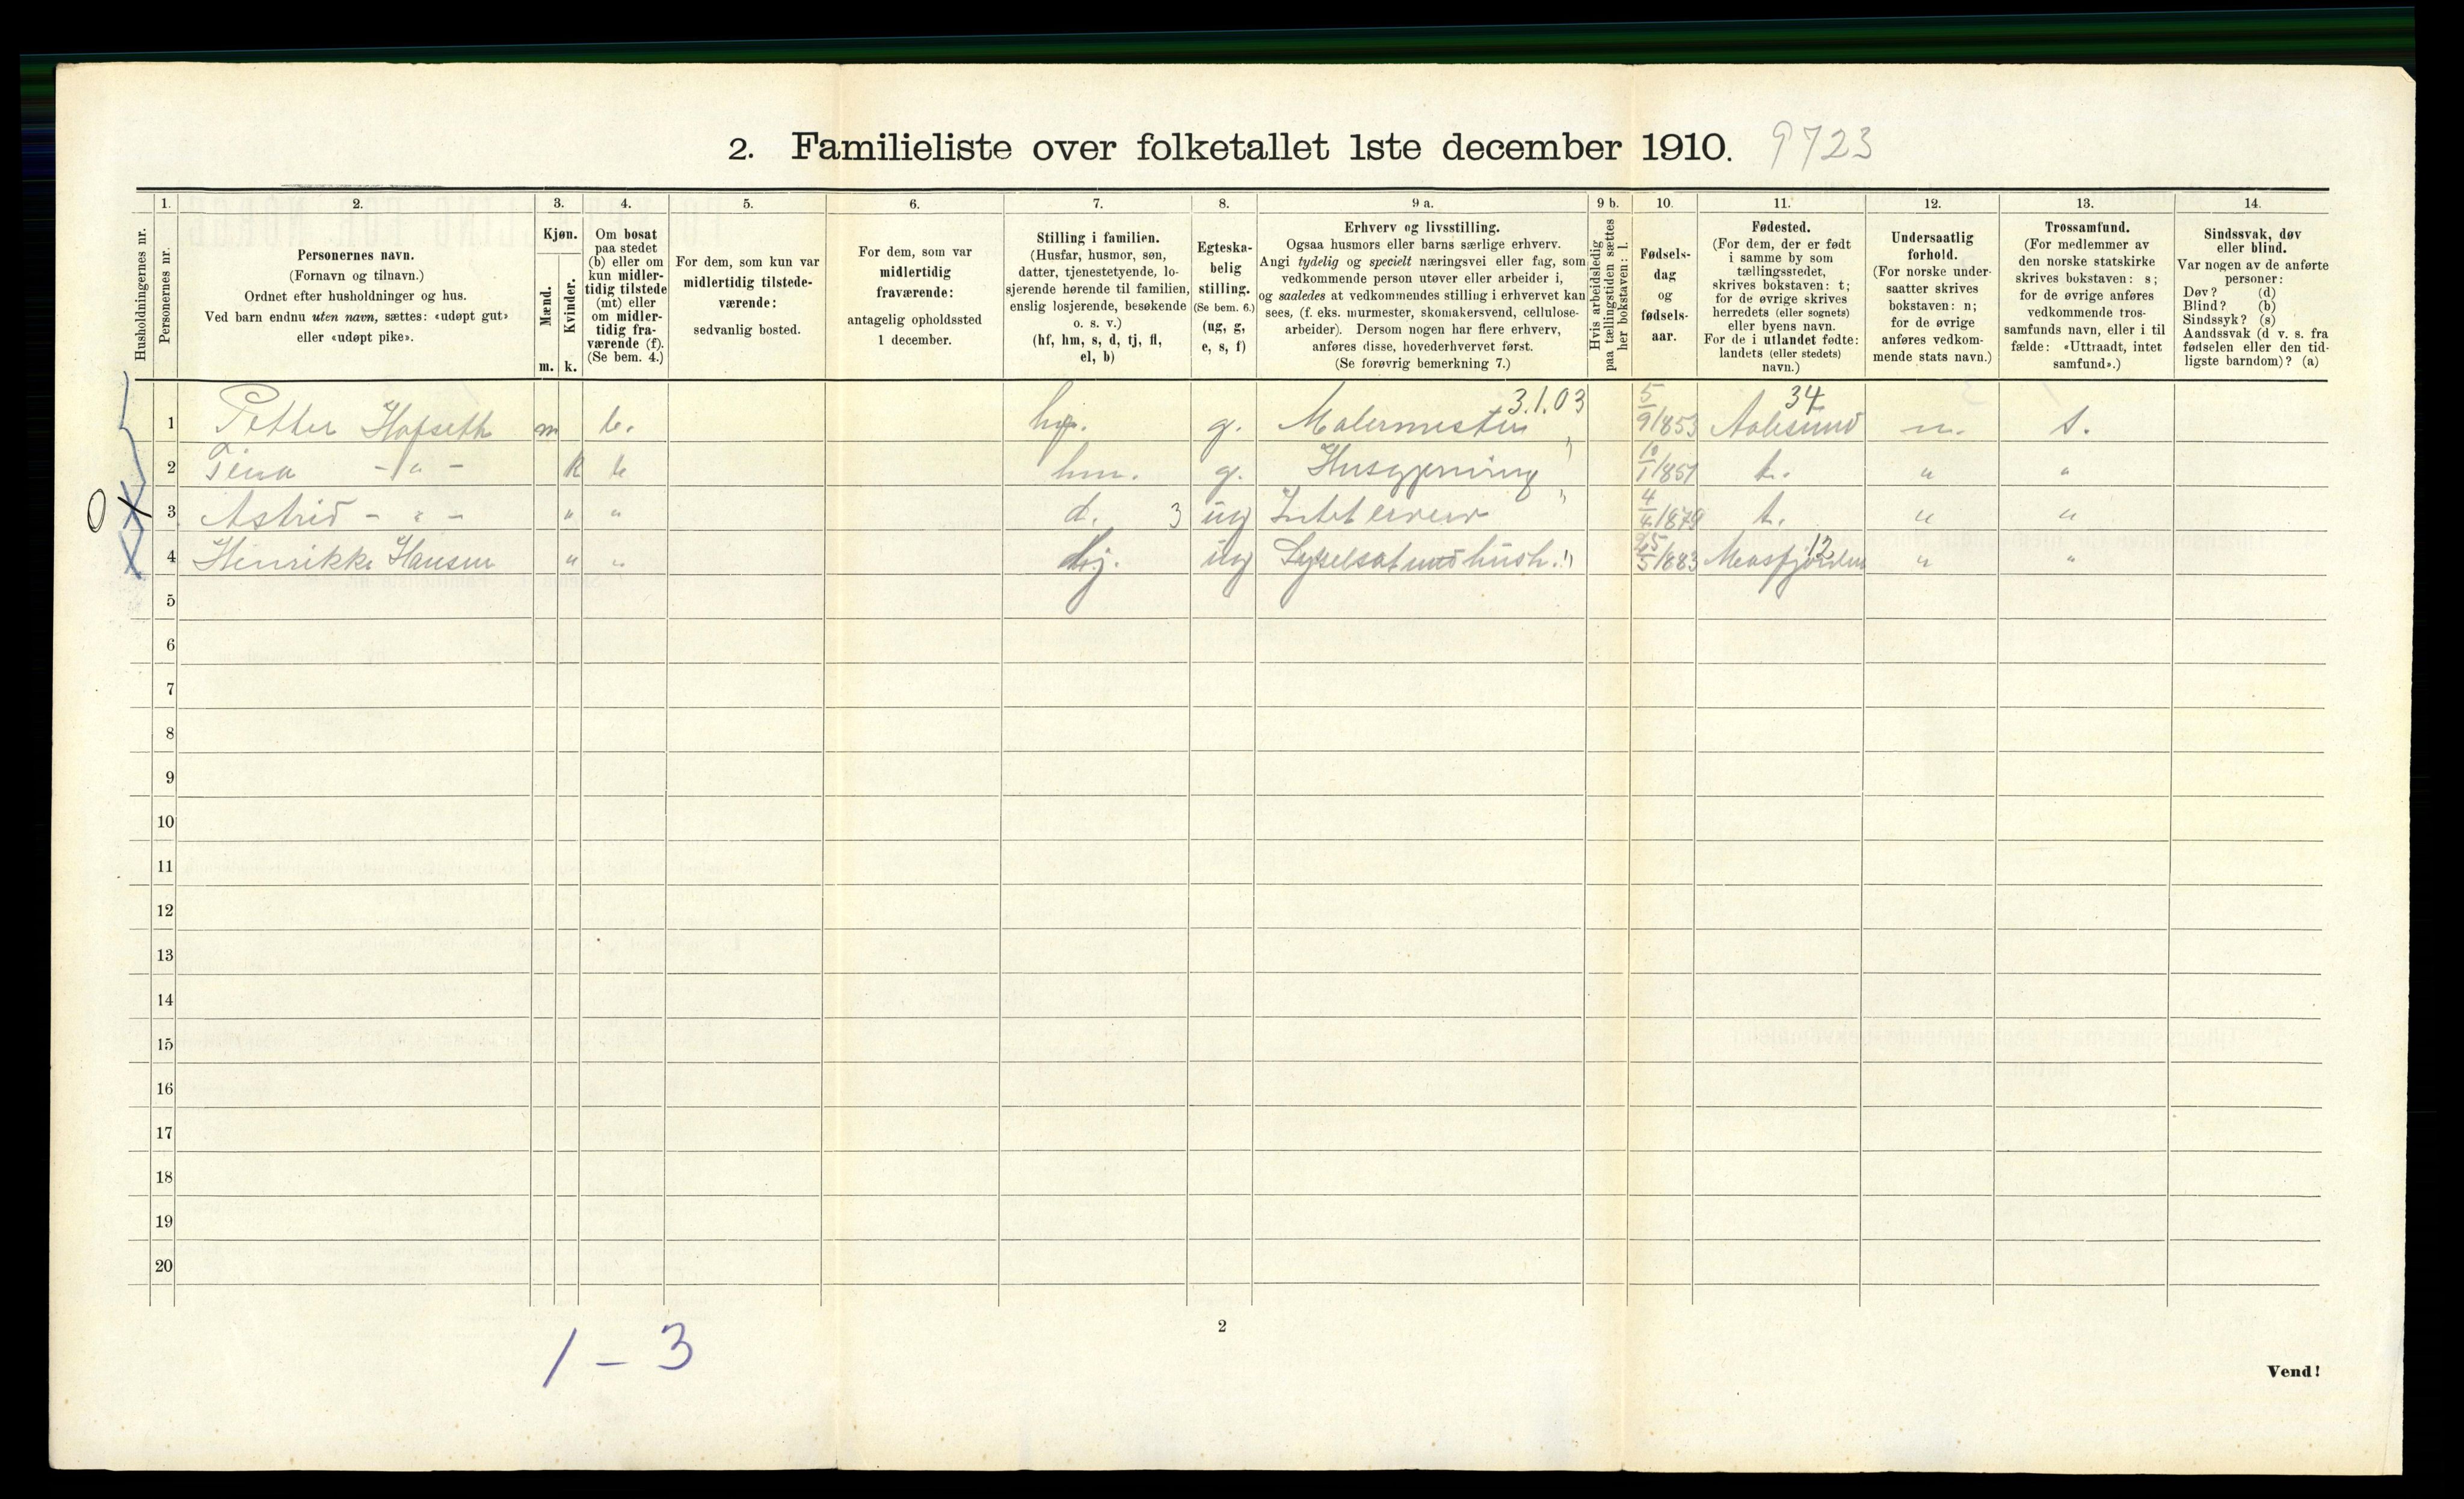 2. Familieliste over folketallet 1ste december 1910. 9723
Husholdningernes nr.
1. Personernes nr.
2. Personernes navn.
(Fornavn og tilnavn.)
Ordnet efter husholdninger og hus.
Ved barn endnu uten navn, sættes: «udøpt gut»
eller «udøpt pike».
3. Kjøn.
Mænd. m.
Kvinder. k.
4. Om bosat
paa stedet
(b) eller om
kun midler-
tidig tilstede
(mt) eller
om midler-
tidig fra-
værende (f).
(Se bem. 4.)
5. For dem, som kun var
midlertidig tilstede-
værende:
sedvanlig bosted.
6. For dem, som var
midlertidig
fraværende:
antagelig opholdssted
1 december.
7. Stilling i familien.
(Husfar, husmor, søn,
datter, tjenestetyende, lo-
sjerende hørende til familien,
enslig losjerende, besøkende
o. s. v.)
(hf, hm, s, d, tj, fl,
el, b)
8. Egteska-
belig
stilling.
(Se bem. 6.)
(ug, g,
e, s, f)
9 a. Erhverv og livsstilling.
Ogsaa husmors eller barns særlige erhverv.
Angi tydelig og specielt næringsvei eller fag, som
vedkommende person utøver eller arbeider i,
og saaledes at vedkommendes stilling i erhvervet kan
sees, (f. eks. murmester, skomakersvend, cellulose-
arbeider). Dersom nogen har flere erhverv,
anføres disse, hovederhvervet først.
(Se forøvrig bemerkning 7.)
9 b. Hvis arbeidsledig
paa tællingstiden sættes
her bokstaven: l.
10. Fødsels-
dag
og
fødsels-
aar.
11. Fødested.
(For dem, der er født
i samme by som
tællingsstedet,
skrives bokstaven: t;
for de øvrige skrives
herredets (eller sognets)
eller byens navn.
For de i utlandet fødte:
landets (eller stedets)
navn.)
12. Undersaatlig
forhold.
(For norske under-
saatter skrives
bokstaven: n;
for de øvrige
anføres vedkom-
mende stats navn.)
13. Trossamfund.
(For medlemmer av
den norske statskirke
skrives bokstaven: s;
for de øvrige anføres
vedkommende tros-
samfunds navn, eller i til
fælde: «Uttraadt, intet
samfund».)
14. Sindssvak, døv
eller blind.
Var nogen av de anførte
personer:
Døv? (d)
Blind? (b)
Sindssyk? (s)
Aandssvak (d v. s. fra
fødselen eller den tid-
ligste barndom)? (a)
1 Petter Hofseth m b. hf. g. Malermester 3.1.03 5/9 1853 Aalesund 34 n. s.
2 Tina - " - k b hm. g. Husgjerning " 10/1 1851 t. " "
3 Astrid - " - " " d. 3 ug Intet erverv " 4/4 1879 t. " "
4 Henrikke Hansen " " tj. ug Sysselsat med hush. " /5 1883 Masfjorden 12 " "
5
6
7
8
9
10
11
12
13
14
15
16
17
18
19
20
1 - 3
2
Vend!